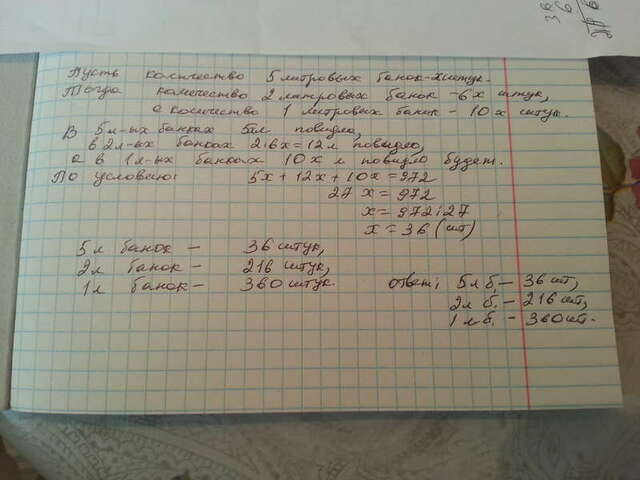 Пусть количество 5 литровых банок - x штук.
Тогда количество 2 литровых банок - 6x штук,
а количество 1 литровых банок - 10x штук.
В 5л-ых банках 5x л повидло,
в 2л-ых банках 2·6x=12x л повидло,
а в 1л-ых банках 10x л повидло будет.
По условию: 5x + 12x + 10x = 972
27x = 972
x = 972:27
x = 36 (шт)
5л банок - 36 штук,
2л банок - 216 штук,
1л банок - 360 штук.
Ответ: 5л б. - 36 шт,
2л б. - 216 шт,
1л б. - 360 шт.
36
6